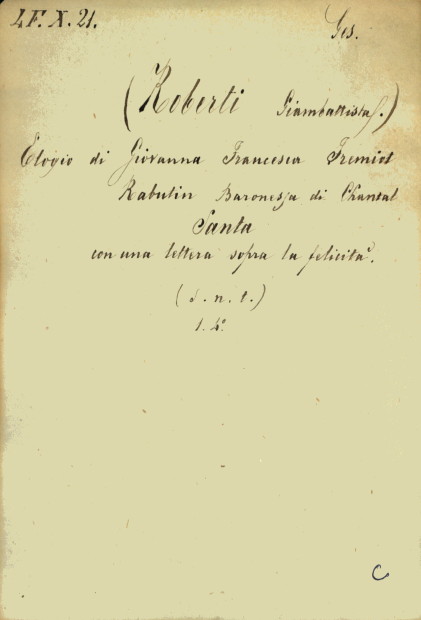 4F. X. 21.
Ges.
(Roberti Giambattista.)
Elogio di Giovanna Francesca Fremiot
Rabutin Baronessa di Chantal
Santa
con una lettera sopra la felicità.
(s. n. t.)
1. 4°
C